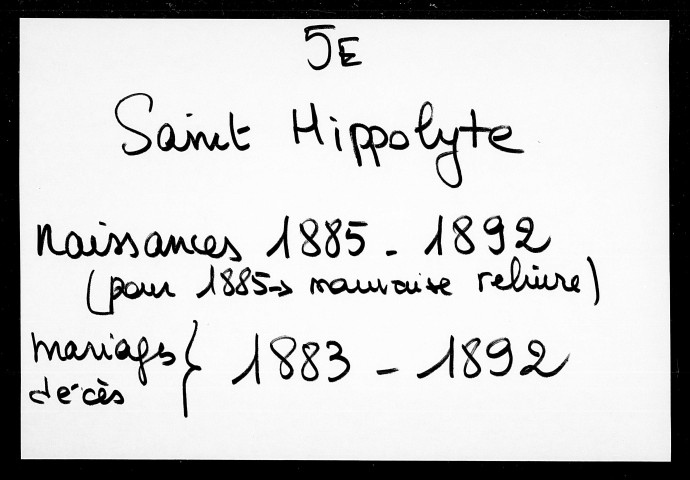 5E
Saint Hippolyte
Naissances 1885 - 1892
(pour 1885 → mauvaise reliure)
mariages } 1883 - 1892
décès